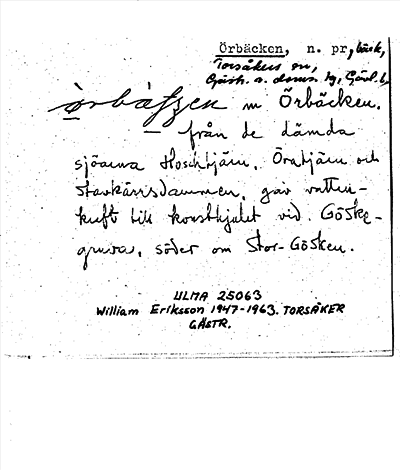 Örbäcken, n. pr, bäck,
Torsåkers sn,
Gästr. ö. doms. tg, Gävl. l.
m Örbäcken.
– från de dämda
sjöarna Hoschtjärn, Öratjärn och
Stavkärrsdammen, gav vatten-
kraft till konsthjulet vid Göske-
gruvan, söder om Stor-Gösken.
ULMA 25063
William Eriksson 1947-1963. TORSÅKER
GÄSTR.